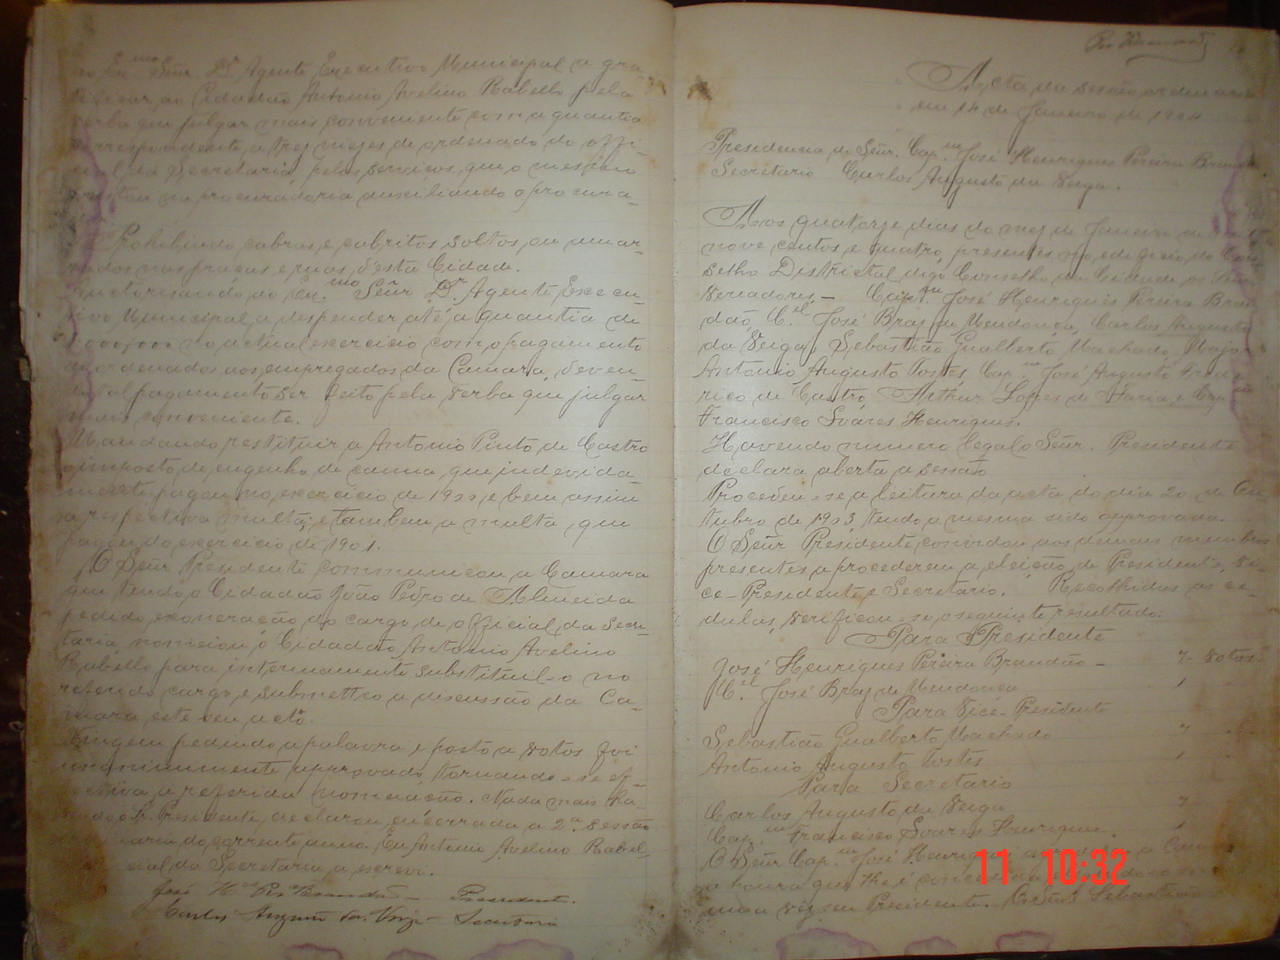 ao Ex.mo Señr. Dr. Agente Executivo Municipal a gra-
tificar ao Cidadão Antonio Avelino Rabello pela
verba que julgar mais conveniente com a quantia
correspondente a trez mezes de ordenado do offi-
cial da Secretaria, pelos serviços, que o mesmo
prestou na procuradoria auxiliando o procura-
Prohibindo cabras e cabritos soltos, ou amar-
rados nas praças e ruas d'esta Cidade.
Auctorisando ao Ex.mo Señr Dr. Agente Execu-
tivo Municipal, a despender até a quantia de
no actual exercicio com o pagamento
de ordenados aos empregados da Camara, deven-
do tal pagamento ser feito pela verba que julgar
mais conveniente.
Mandando restituir a Antonio Pinto de Castro
o imposto de engenho de canna, que indevida-
mente pagou no exercicio de e bem assim
a respectiva multa; e tambem a multa que
pagou do exercicio de 1901.
O Señr Presidente communicou a Camara
que tendo o Cidadão João Pedro de Almeida
pedido exoneração do cargo de official da Secre-
taria, nomeiou o Cidadão Antonio Avelino
Rabello para internamente substituil-o no
referido cargo e submetteo a discussão da Ca-
mara este seu acto.
Ninguem pedindo a palavra e posto a votos foi
unanimemente approvado, tornando-se ef-
fectiva a referida nomeiação. Nada mais ha-
vendo o Sr. Presidente, declarou encerrada a 2.a sessão
do corrente anno. Eu Antonio Avelino Rabel-
cial da Secretaria a escrevi.
José H.es Pr.a Brandão - Presidente.
Carlos Augusto da Veiga - Secretario
Acta da sessão ordinaria
em 14 de Janeiro de 1904
Presidencia do Señr. Cap.m José Henriques Pereira Brandão
Secretario Carlos Augusto da Veiga.
Aos quatorze dias do mez de Janeiro de
nove centos e quatro, presentes no edificio do Con-
selho Districtal digo Conselho da Cidade os Srs
Vereadores - Cap.m José Henriques Pereira Bran-
dão, C.el José Braz de Mendonça, Carlos Augusto
da Veiga, Sebastião Gualberto Machado, Major
Antonio Augusto Tostes, Cap.m José Augusto Frede-
rico de Castro, Arthur Lopes de Faria, e Cap.m
Francisco Soares Henriques.
Havendo numero legal o Señr. Presidente
declara aberta a sessão
Procedeu-se a leitura da acta do dia 20 de Ou-
tubro de 1903, tendo a mesma sido approvada.
O Señr Presidente convidou aos demais membros
presentes a procederem a eleição de Presidente, Vi-
ce-Presidente e Secretario. Recolhidas as ce-
dulas, verificou-se o seguinte resultado:
Para Presidente
José Henriques Pereira Brandão - 7 - votos
C.el José Braz de Mendonça 1
Para Vice-Presidente
Sebastião Gualberto Machado 7
Antonio Augusto Tostes 1
Para Secretario
Carlos Augusto da Veiga 7
Cap.m Francisco Soares Henriques. 1
O Señr Cap.m José Henriques a Cam
a honra que lhe é
uma vez seu Presidente. O Señr Sebastião
11 10:32